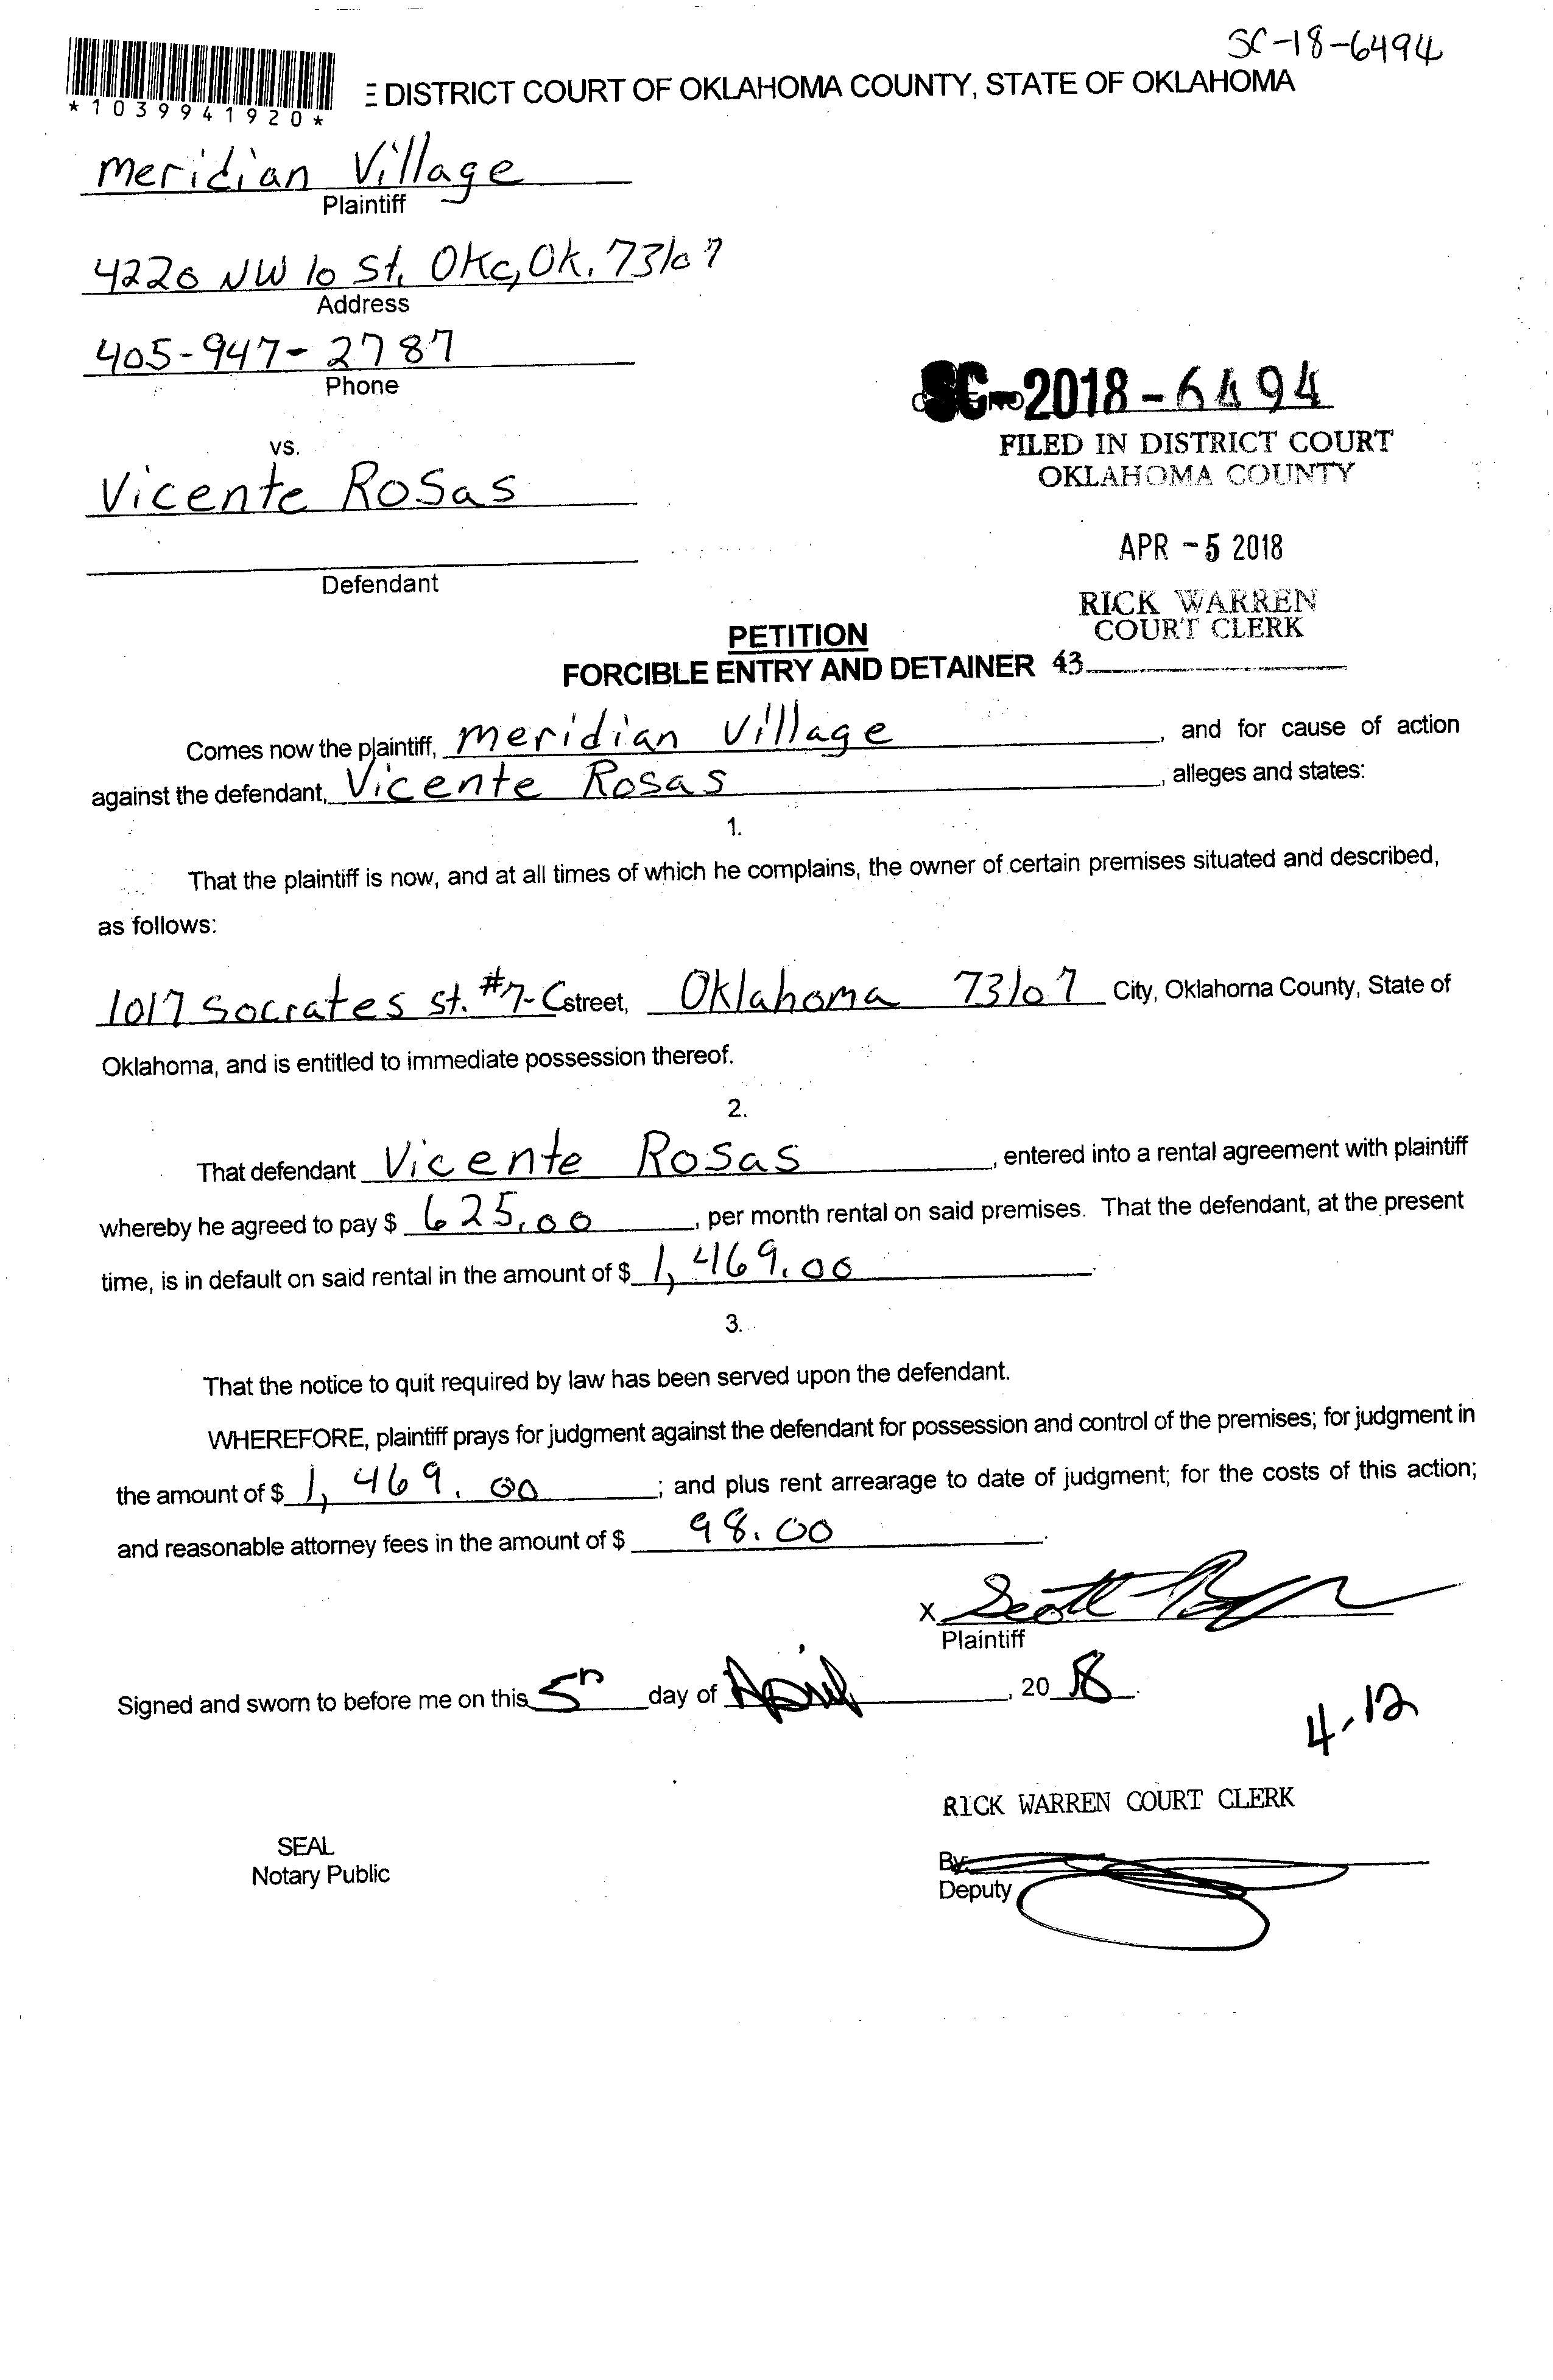 SC-18-6494
*1039941920*
E DISTRICT COURT OF OKLAHOMA COUNTY, STATE OF OKLAHOMA
Meridian Village
Plaintiff
4220 NW 10 St, OKc, Ok. 73107
Address
405-947-2787
Phone
SC-2018-6494
FILED IN DISTRICT COURT
OKLAHOMA COUNTY
vs.
Vicente Rosas
APR -5 2018
Defendant
RICK WARREN
COURT CLERK
PETITION
FORCIBLE ENTRY AND DETAINER 43
Comes now the plaintiff, Meridian Village, and for cause of action
against the defendant, Vicente Rosas, alleges and states:
1.
That the plaintiff is now, and at all times of which he complains, the owner of certain premises situated and described,
as follows:
1017 Socrates St. #7-C street, Oklahoma 73107 City, Oklahoma County, State of
Oklahoma, and is entitled to immediate possession thereof.
2.
That defendant Vicente Rosas, entered into a rental agreement with plaintiff
whereby he agreed to pay $ 625.00, per month rental on said premises. That the defendant, at the present
time, is in default on said rental in the amount of $ 1,469.00.
3.
That the notice to quit required by law has been served upon the defendant.
WHEREFORE, plaintiff prays for judgment against the defendant for possession and control of the premises; for judgment in
the amount of $ 1,469.00; and plus rent arrearage to date of judgment; for the costs of this action;
and reasonable attorney fees in the amount of $ 98.00.
X Scott
Plaintiff
Signed and sworn to before me on this 5th day of April, 2018.
4-12
RICK WARREN COURT CLERK
SEAL
Notary Public
By:
Deputy